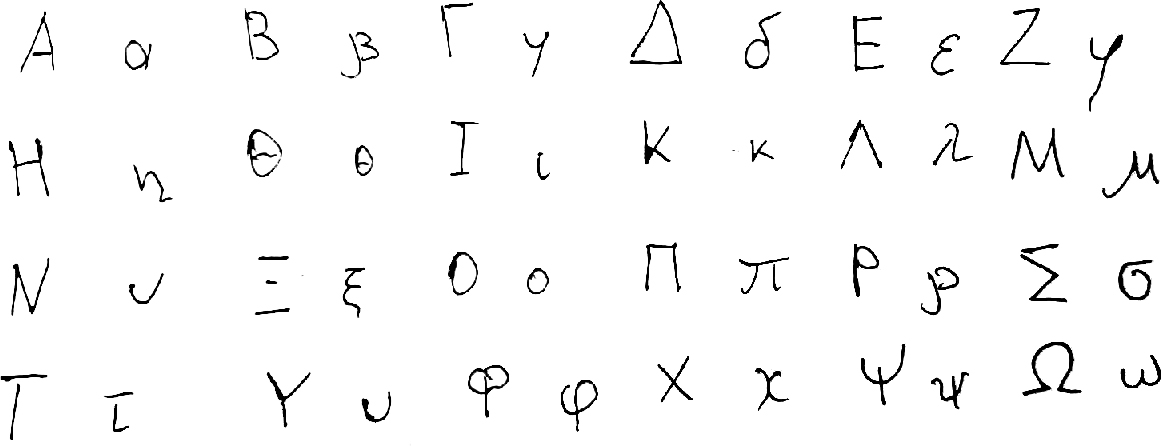 Α α Β β Γ γ Δ δ Ε ε Ζ φ
Η η Θ θ Ι ι Κ κ Λ λ Μ μ
Ν υ Ξ ξ Ο ο Π π Ρ ρ Σ σ
Τ τ Υ υ Φ φ Χ χ Ψ ψ Ω ω